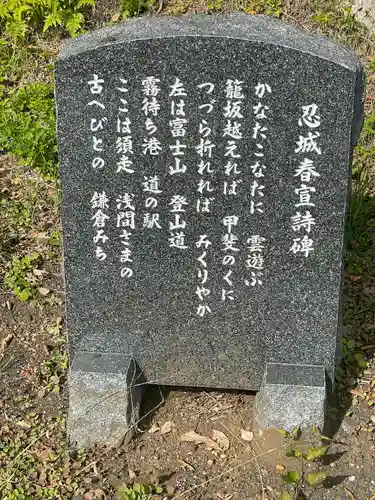 忍城春宣詩碑
かなたこなたに 雲遊ぶ
籠坂越えれば 甲斐のくに
つづら折れれば みくりやか
左は富士山 登山道
霧待ち港 道の駅
ここは須走 浅間さまの
古へびとの 鎌倉みち